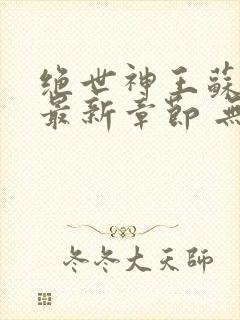 绝世神王蘇
最新章節 無
冬冬大天師